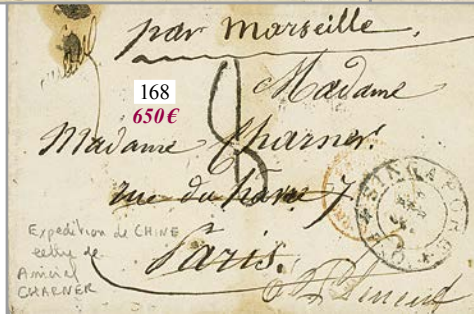 par Marseille.
168
650 €
8
Madame
Madame Charner.
rue du havre 7
SINGAPORE
Paris.
Expédition de CHINE
lettre de
Amiral
CHARNER